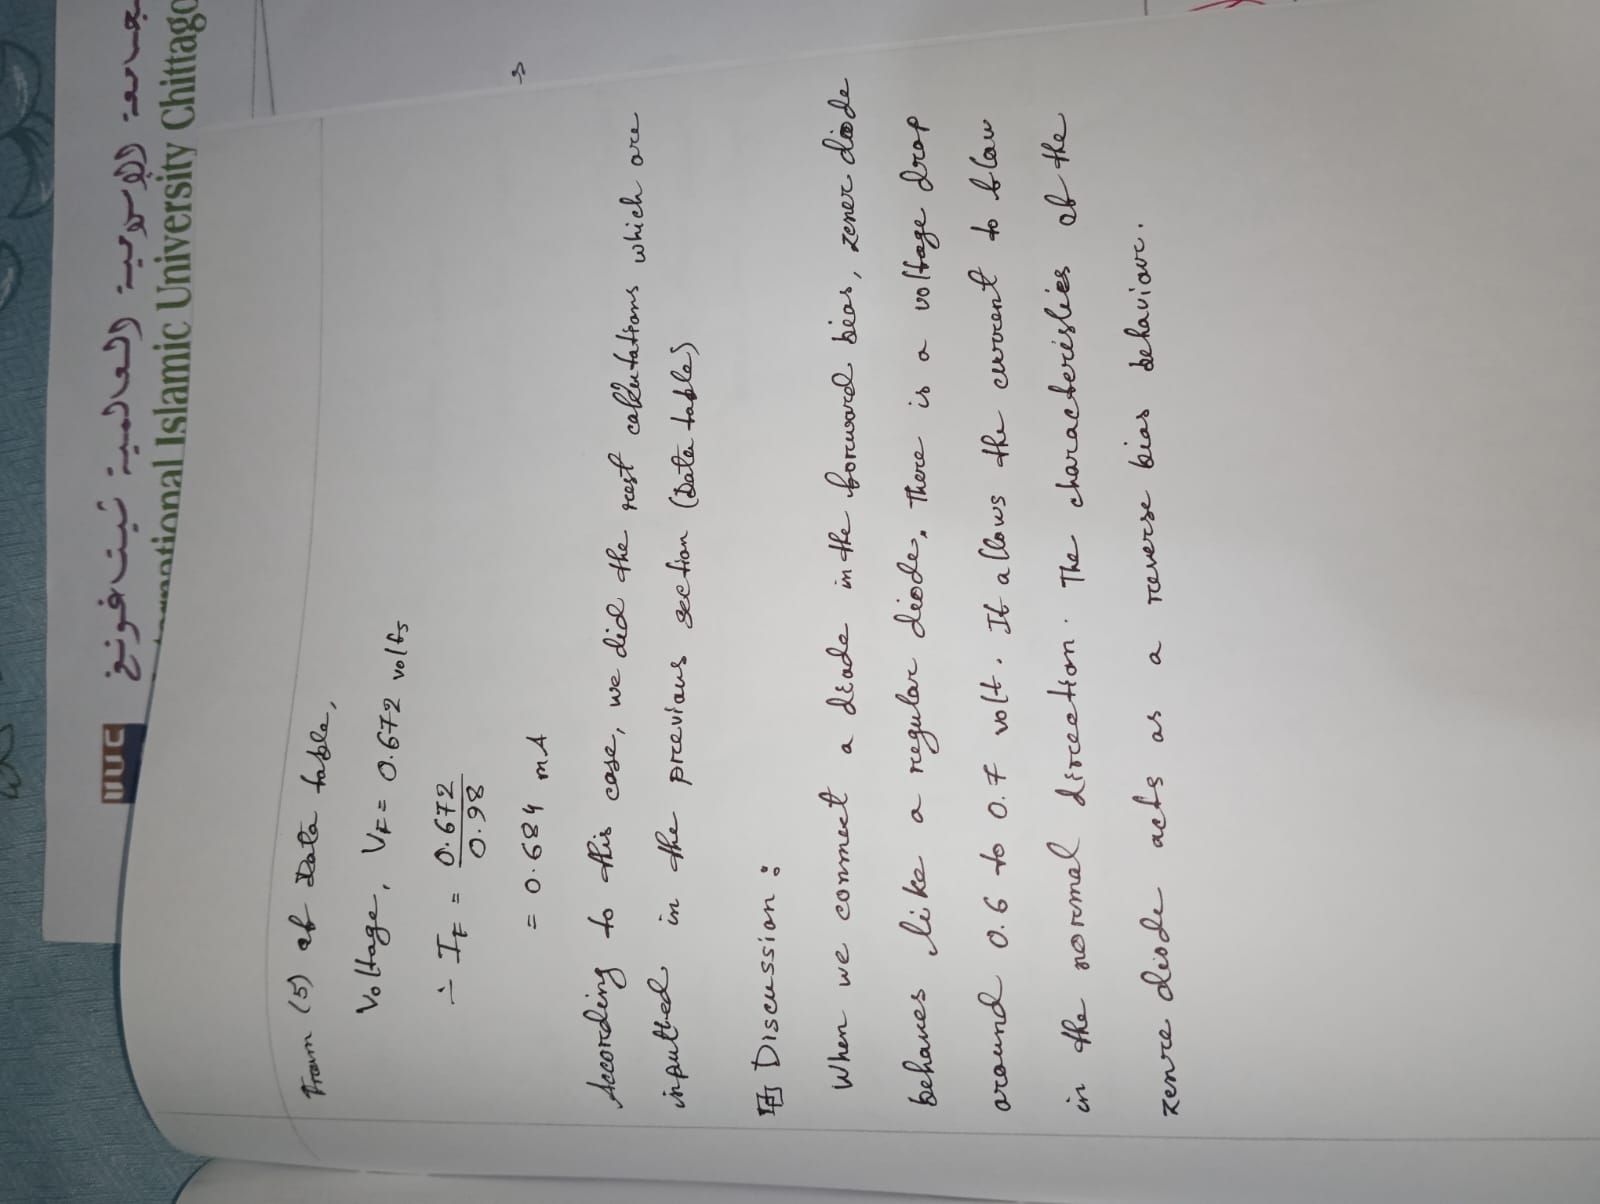 الجامعة الإسلامية العالمية شيتاغونغ
International Islamic University Chittago
IIUC
From (5) of Data table,
Voltage, VF = 0.672 volts
∴ IF = 0.672 / 0.98
= 0.684 mA
According to this case, we did the rest calculations which are
inputted in the previous section (Data table)
Discussion :
When we connect a diode in the forward bias, zener diode
behaves like a regular diode, There is a voltage drop
around 0.6 to 0.7 volt. It allows the current to flow
in the normal direction. The characteristics of the
zenre diode acts as a reverse bias behaviour.